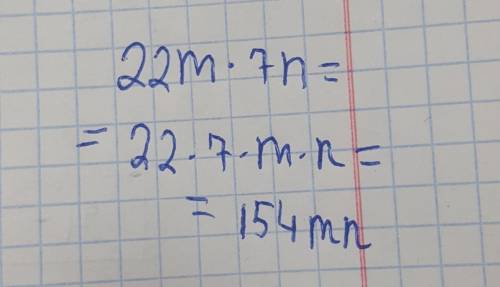 22m · 7n =
= 22 · 7 · m · n =
= 154mn